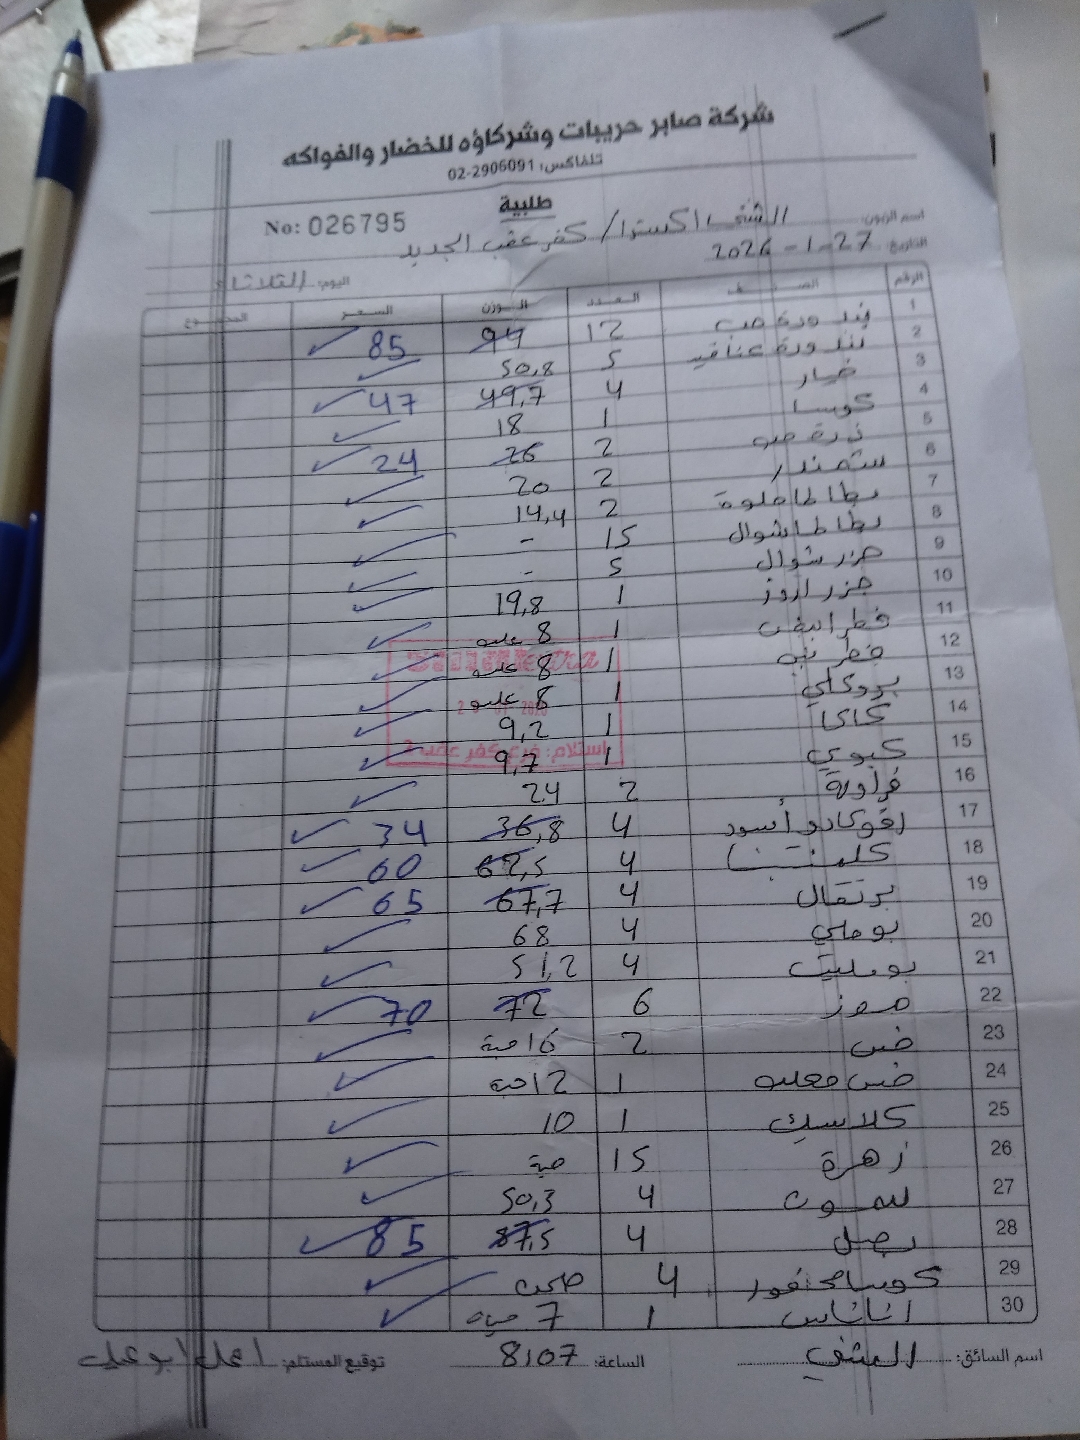 شركة صابر حريبات وشركاؤه للخضار والفواكه
تلفاكس: 02-2906091
طلبية
No: 026795
اسم الزبون: الشني اكسترا / كفر عقب الجديد
التاريخ: 27-1-2026
اليوم: الثلاثاء
الرقم الصنف العدد الوزن السعر المجموع
1 بندورة حب 12 94 85
2 بندورة عناقيد 5 50,8
3 خيار 4 49,7 47
4 كوسا 1 18
5 ذرة حب 2 26 24
6 شمندر 2 20
7 بطاطا حلوة 2 14,4
8 بطاطا شوال 15 -
9 جزر شوال 5 -
10 جزر اروز 1 19,8
11 فطر ابيض 1 8 علب
12 فطر بني 1 8 علب
13 بروكلي 1 8 علب
14 كاكا 1 9,2
15 كيوي 1 9,7
16 فراولة 2 24
17 افوكادو أسود 4 36,8 34
18 كلمنتينا 4 62,5 60
19 برتقال 4 67,7 65
20 بوملي 4 68
21 بومليت 4 51,2
22 موز 6 72 70
23 خس 2 16 حبة
24 خس معلب 1 12 حبة
25 كلاسيك 1 10
26 زهرة 15 حبة
27 ليمون 4 50,3
28 بصل 4 87,5 85
29 كوسا محفور 4 صحن
30 اناناس 1 7 حبه
استلام: فرع كفر عقب 2
اسم السائق: العشي الساعة: 8:07 توقيع المستلم: امل ابو علي